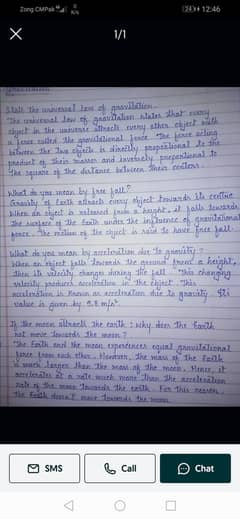 Zong CMPak
12:46
1/1
Gravitation
State the universal law of gravitation.
The universal law of gravitation states that every
object in the universe attracts every other object with
a force called the gravitational force. The force acting
between the two objects is directly proportional to the
product of their masses and inversely proportional to
the square of the distance between their centers.
What do you mean by free fall?
Gravity of Earth attracts every object towards its centre
When an object is released from a height, it falls towards
the surface of the Earth under the influence of gravitational
force. The motion of the object is said to have free fall.
What do you mean by acceleration due to gravity?
When an object falls towards the ground from a height,
then its velocity changes during the fall. This changing
velocity produces acceleration in the object. This
acceleration is known as acceleration due to gravity. Its
value is given by 9.8 m/s².
If the moon attracts the earth, why does the Earth
not move towards the moon?
The Earth and the moon experiences equal gravitational
force from each other. However, the mass of the Earth
is much larger than the mass of the moon. Hence, it
accelerates at a rate much more than the acceleration
rate of the moon towards the earth. For this reason,
the Earth doesn't move towards the moon.
SMS
Call
Chat